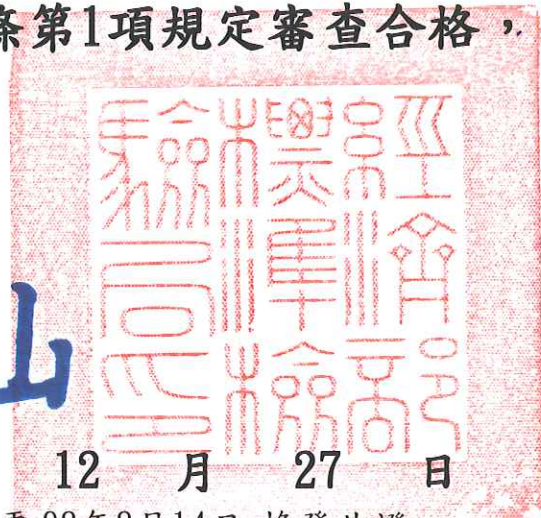 條第1項規定審查合格，
經濟部
標準檢
驗局印
12 月 27 日